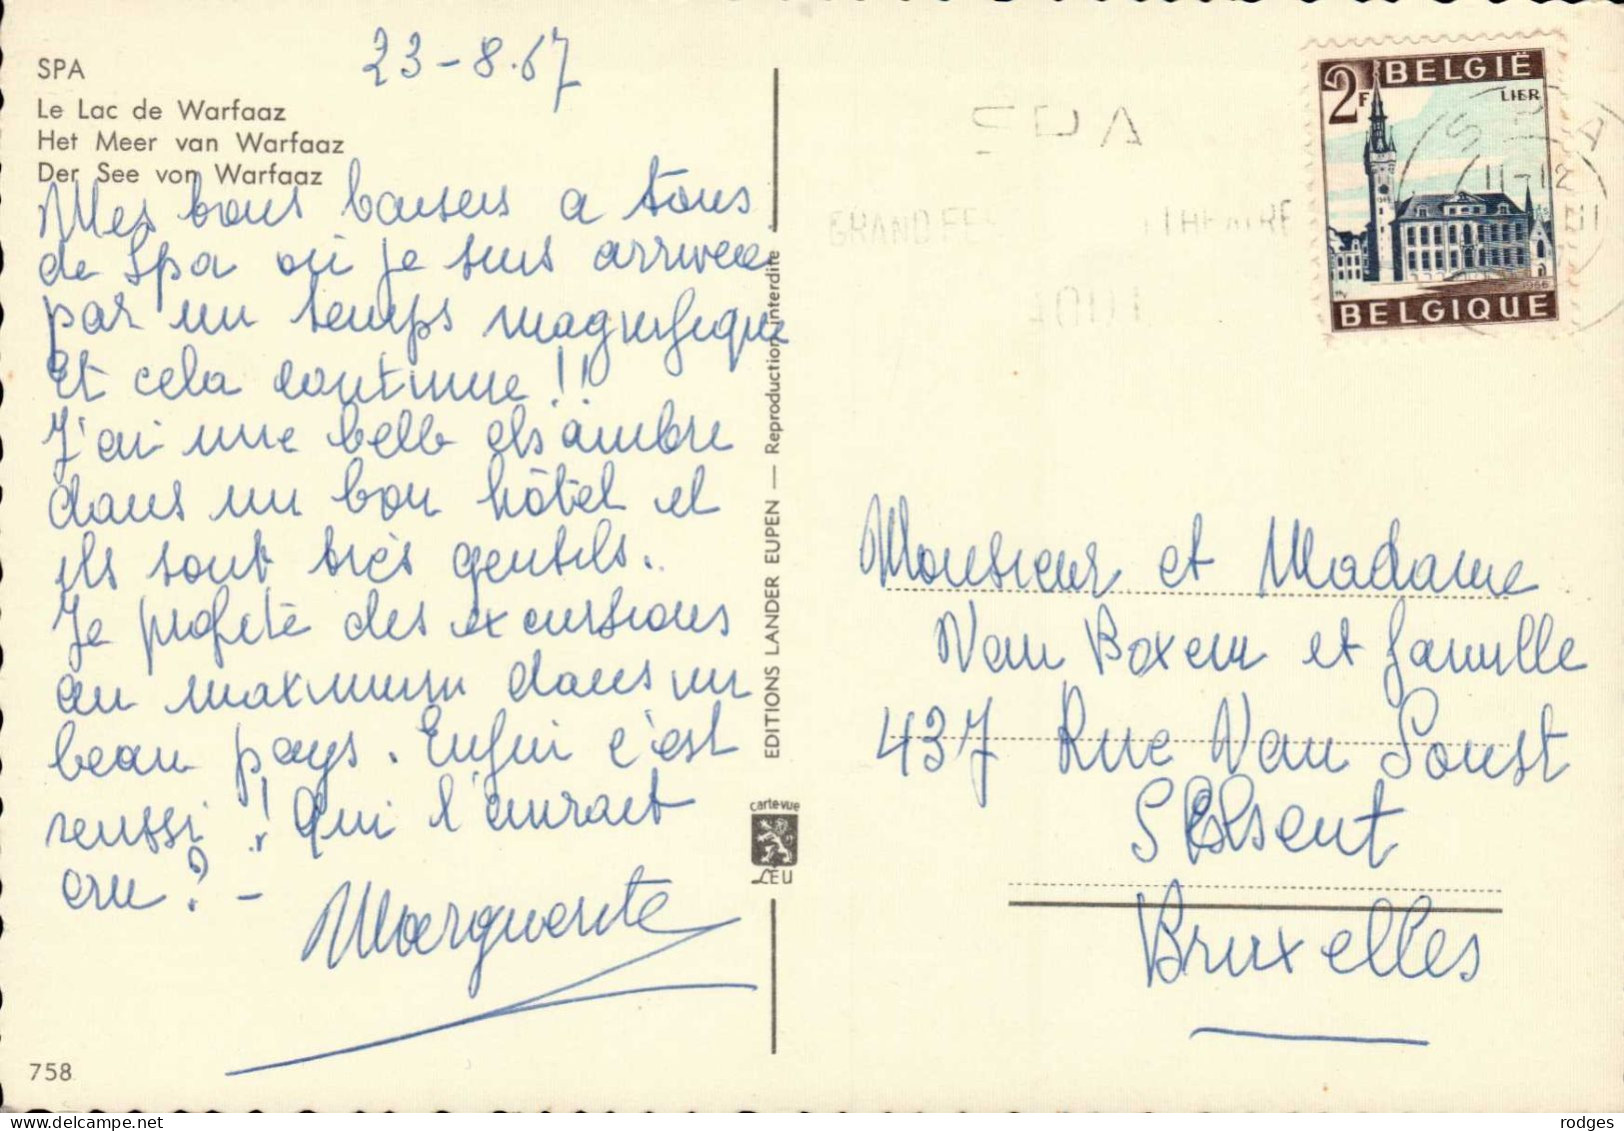 SPA
Le Lac de Warfaaz
Het Meer van Warfaaz
Der See von Warfaaz
23-8.67
Mes bons baisers a tous
de Spa où je suis arrivée
par un temps magnifique
Et cela continue !!
J'ai une belle chambre
dans un bon hôtel et
ils sont très gentils.
Je profite des excursions
au maximum dans un
beau pays. Enfin c'est
reussi ! Qui l'aurait
cru ? -
Marguerite
758
EDITIONS LANDER EUPEN — Reproduction interdite
carte-vue
LEU
BELGIË
2F
LIER
1966
BELGIQUE
SPA
11-12
SPA
GRAND FES
THEATRE
Monsieur et Madame
Van Boxem et famille
437 Rue Van Soust
Bruxelles
rodges